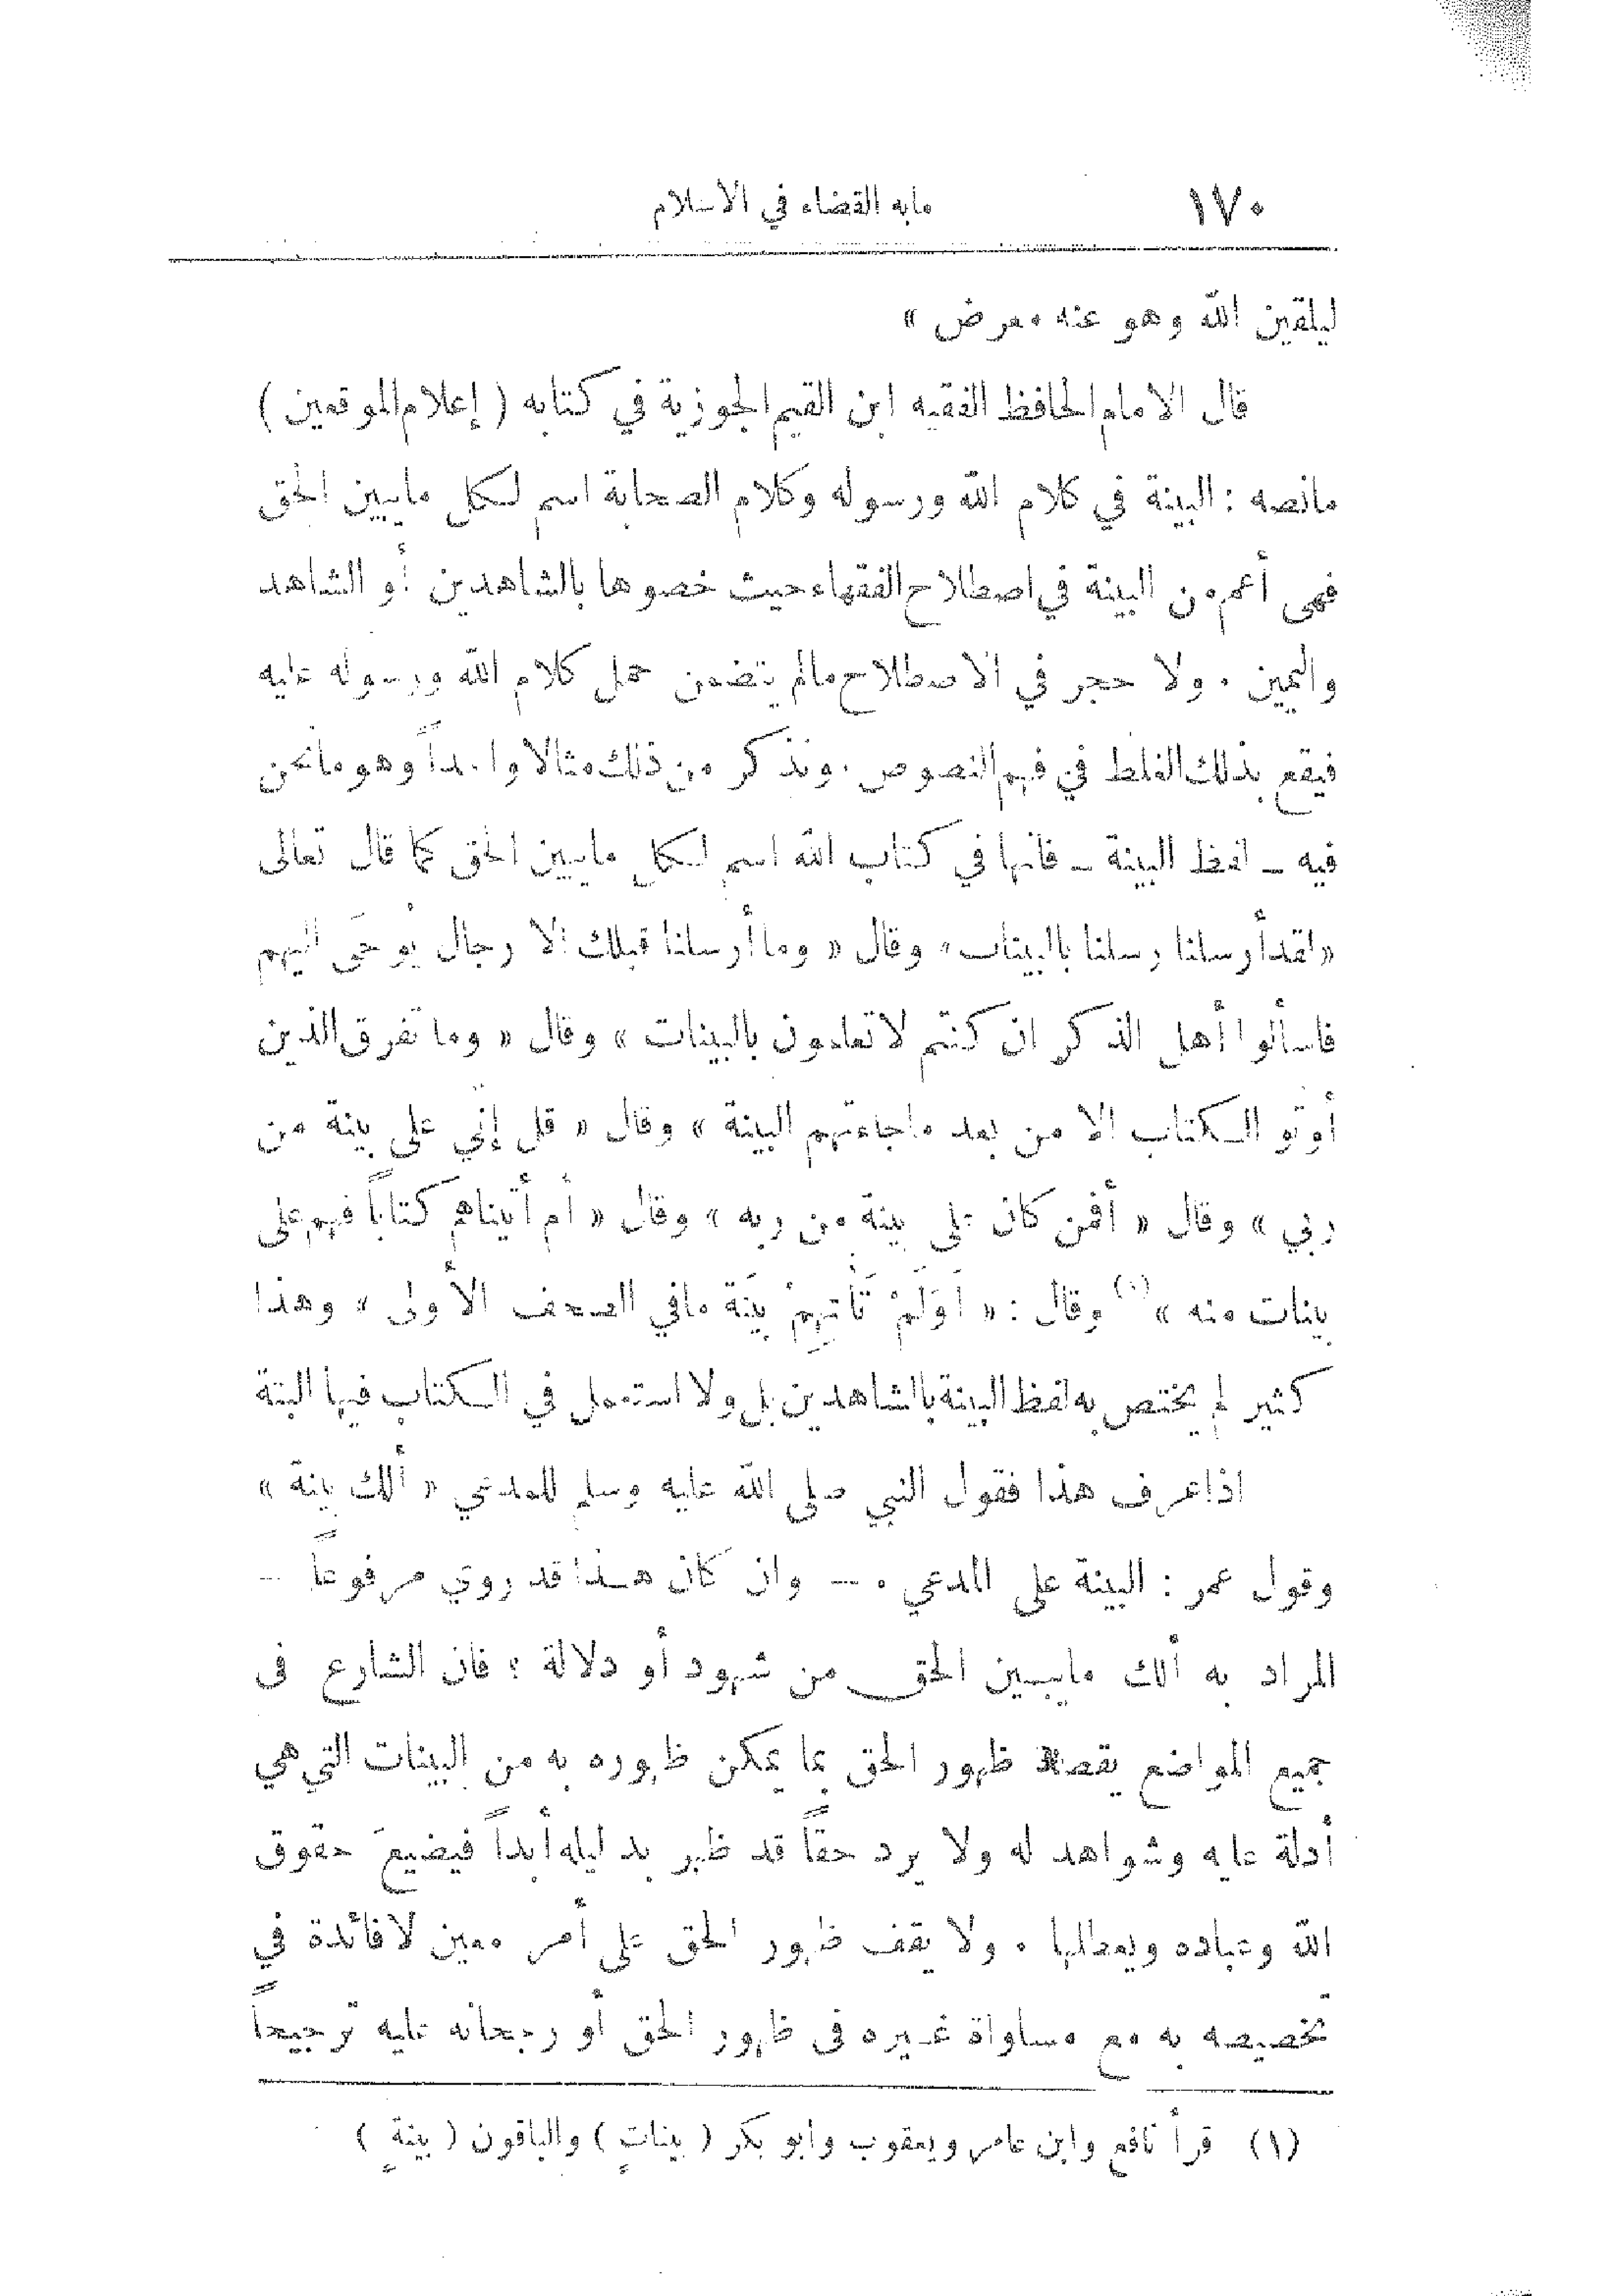 ١٧٠
مابه القضاء في الاسلام
ليلقين الله وهو عنه معرض »
قال الامام الحافظ الفقيه ابن القيم الجوزية في كتابه ( إعلام الموقعين )
مانصه : البينة في كلام الله ورسوله وكلام الصحابة اسم لكل مايبين الحق
فهي أعم من البينة في اصطلاح الفقهاء حيث خصوها بالشاهدين أو الشاهد
واليمين . ولا حجر في الاصطلاح مالم يتضمن حمل كلام الله ورسوله عليه
فيقع بذلك الغلط في فهم النصوص . ونذكر من ذلك مثالا واحداً وهو مانحن
فيه ـ لفظ البينة ـ فانها في كتاب الله اسم لكل مايبين الحق كما قال تعالى
« لقد أرسلنا رسلنا بالبينات » وقال « وما أرسلنا قبلك الا رجال يُوحَى اليهم
فاسألوا أهل الذكر ان كنتم لا تعلمون بالبينات » وقال « وما تفرق الذين
أوتو الكتاب الا من بعد ماجاءتهم البينة » وقال « قل إنّي على بينة من
ربي » وقال « أفمن كان على بينة من ربه » وقال « أم أتيناهم كتاباً فهم على
بينات منه » (١) وقال : « أوَلَمْ تَأتِهِمْ بَيِّنَة مافي الصحف الأولى » وهذا
كثير لم يختص به لفظ البينة بالشاهدين بل ولا استعمل في الكتاب فيها البتة
اذا عرف هذا فقول النبي صلى الله عليه وسلم للمدعي « ألك بينة »
وقول عمر : البينة على المدعي . ـ وان كان هذا قد روي مرفوعاً ـ
المراد به ألك مايبين الحق من شهود أو دلالة ؛ فان الشارع فى
جميع المواضع يقصد ظهور الحق بما يمكن ظهوره به من البينات التي هي
أدلة عليه وشواهد له ولا يرد حقاً قد ظهر بدليله أبداً فيضيعَ حقوق
الله وعباده ويعطلها . ولا يقف ظهور الحق على أمر معين لا فائدة في
تخصيصه به مع مساواة غيره فى ظهور الحق أو رجحانه عليه ترجيحاً
(١) قرأ نافع وابن عامر ويعقوب وابو بكر ( بيناتٍ ) والباقون ( بينةٍ )